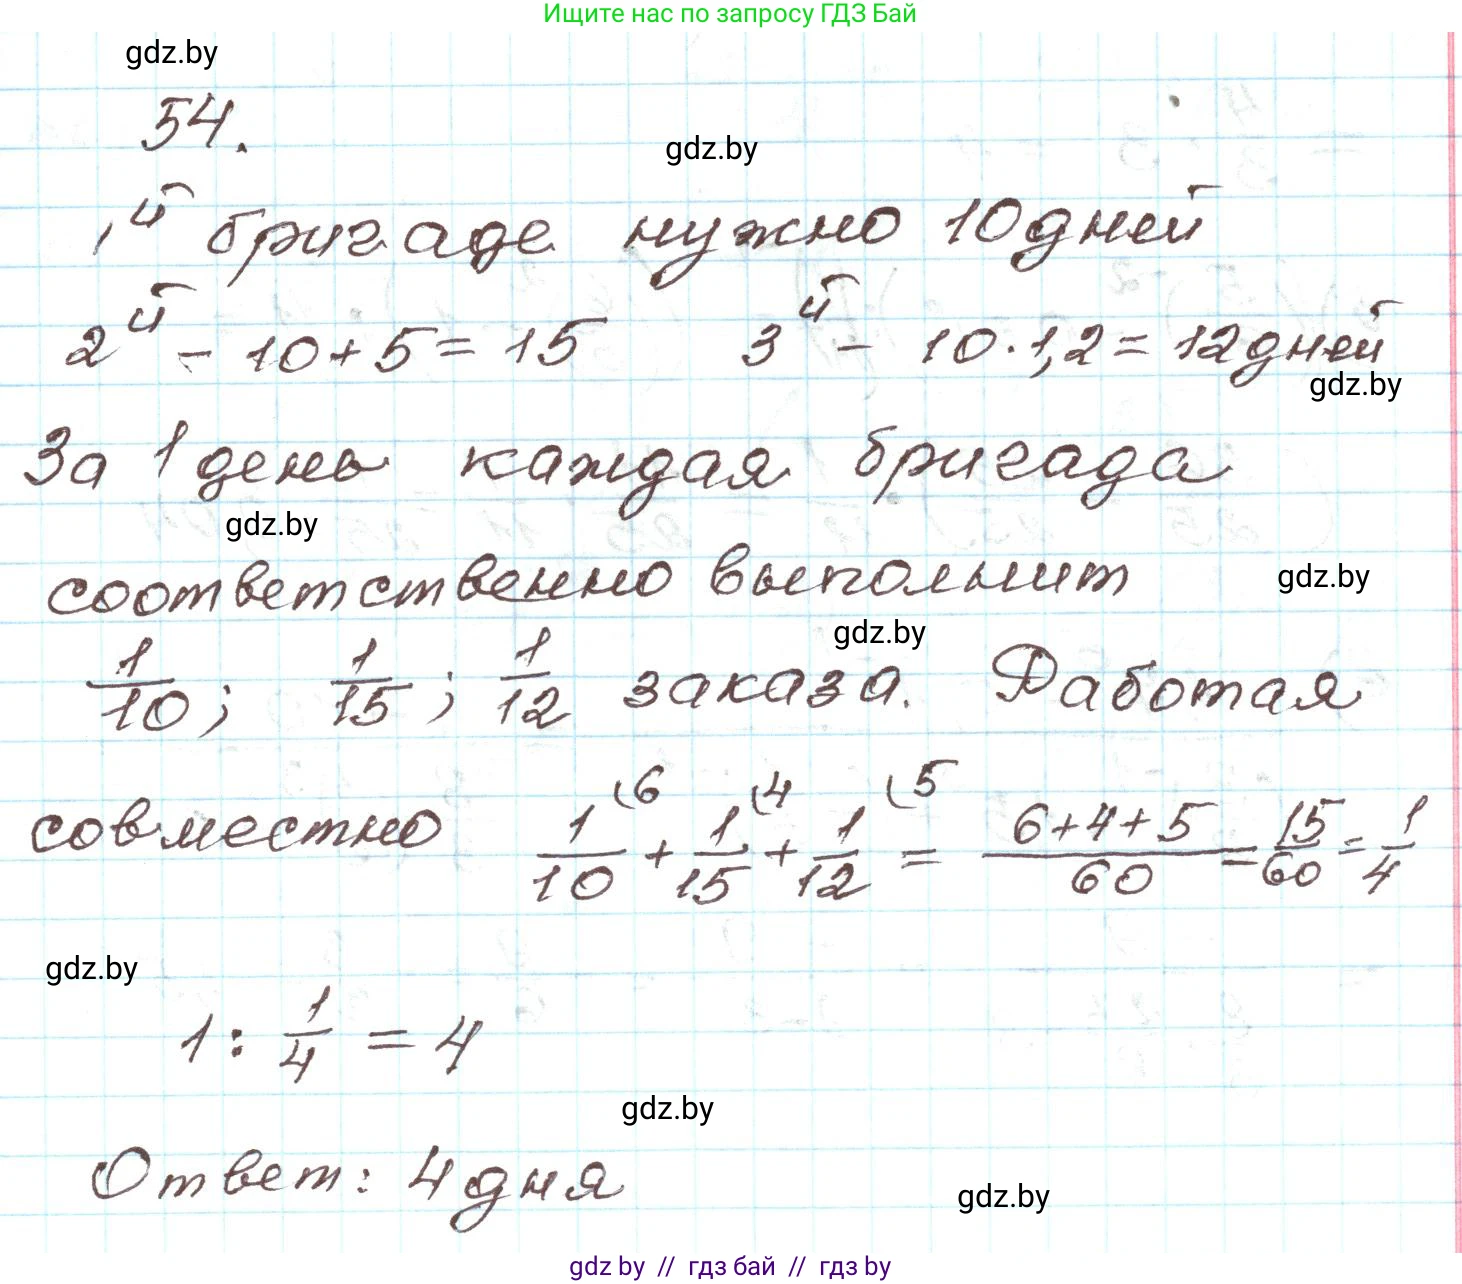 Ищите нас по запросу ГДЗ Бай
gdz.by
54.
gdz.by
1й бригаде нужно 10 дней
2й - 10 + 5 = 15 3й - 10 · 1,2 = 12 дней
gdz.by
За 1 день каждая бригада
gdz.by
соответственно выполнит
gdz.by
gdz.by
1/10; 1/15; 1/12 заказа. Работая
совместно 1/10 (6 + 1/15 (4 + 1/12 (5 = 6+4+5/60 = 15/60 = 1/4
gdz.by
1 : 1/4 = 4
gdz.by
Ответ: 4 дня
gdz.by
gdz by // гдз бай // гдз by